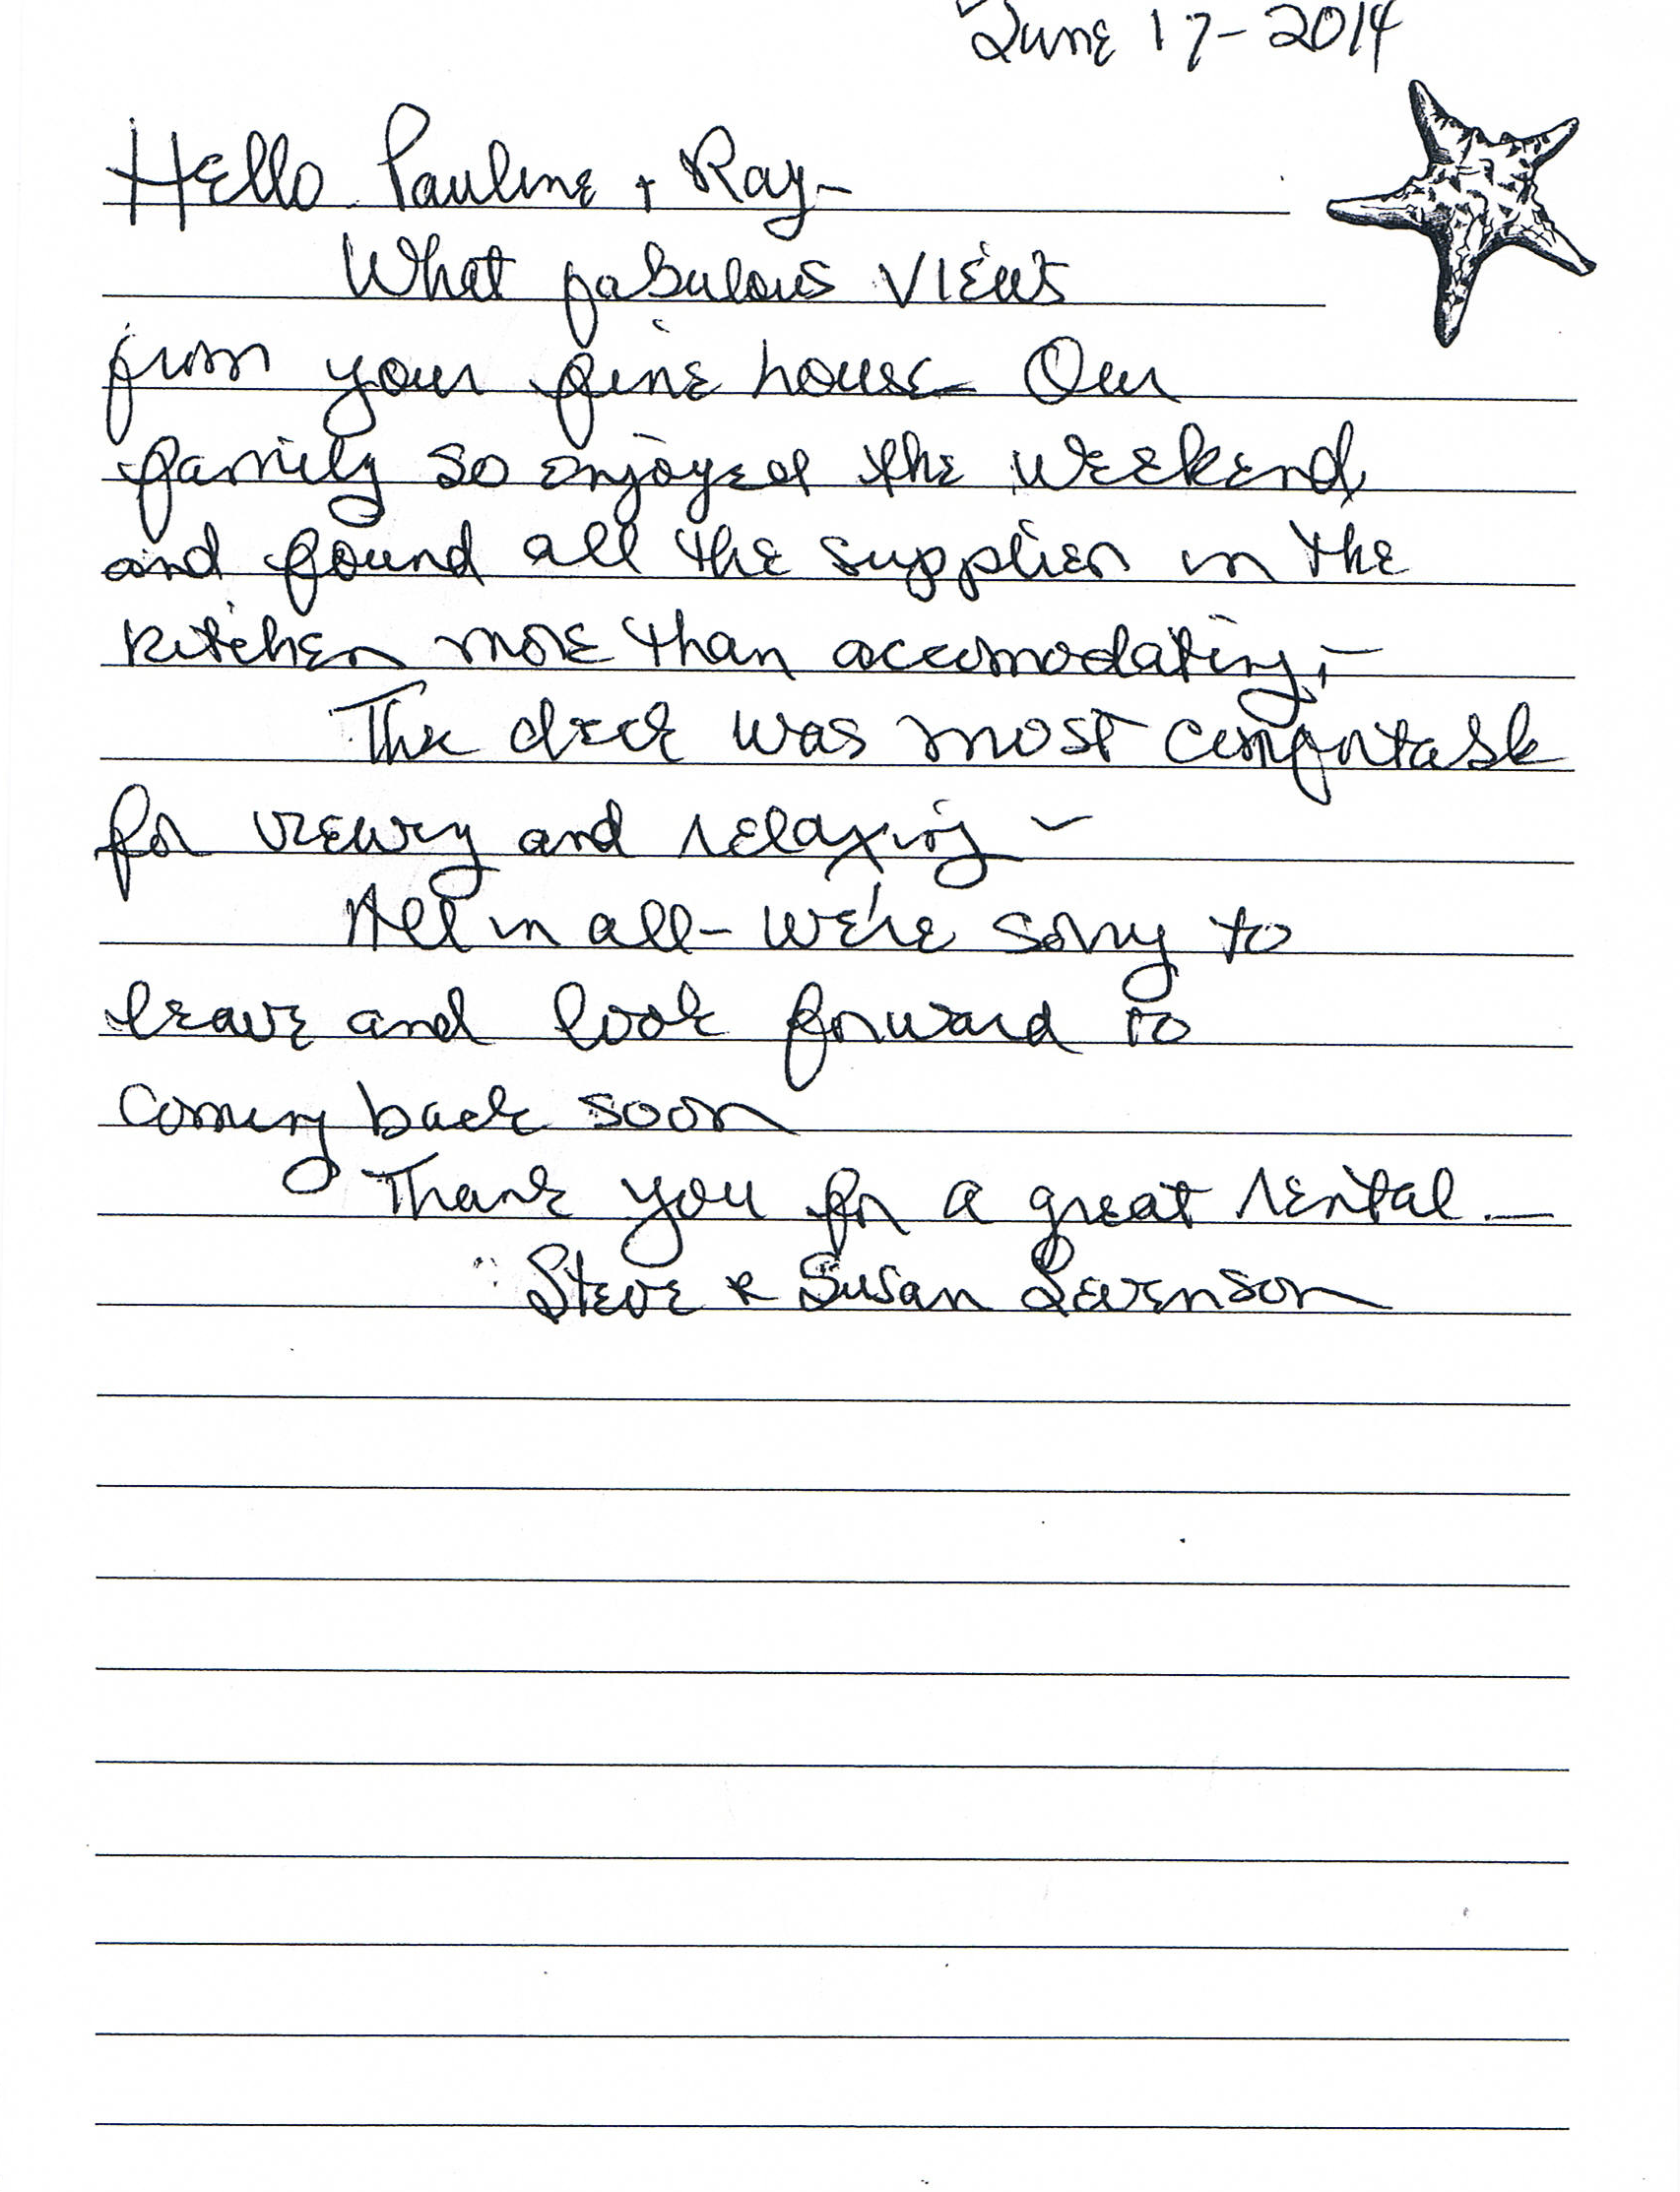 June 17-2014
Hello Pauline + Ray-
What fabulous views
from your fine house- Our
family so enjoyed the weekend
and found all the supplies in the
kitchen more than accomodating,-
The deck was most comfortable
for viewing and relaxing -
All in all- we're sorry to
leave and look forward to
coming back soon
Thank you for a great rental-
Steve & Susan Levenson